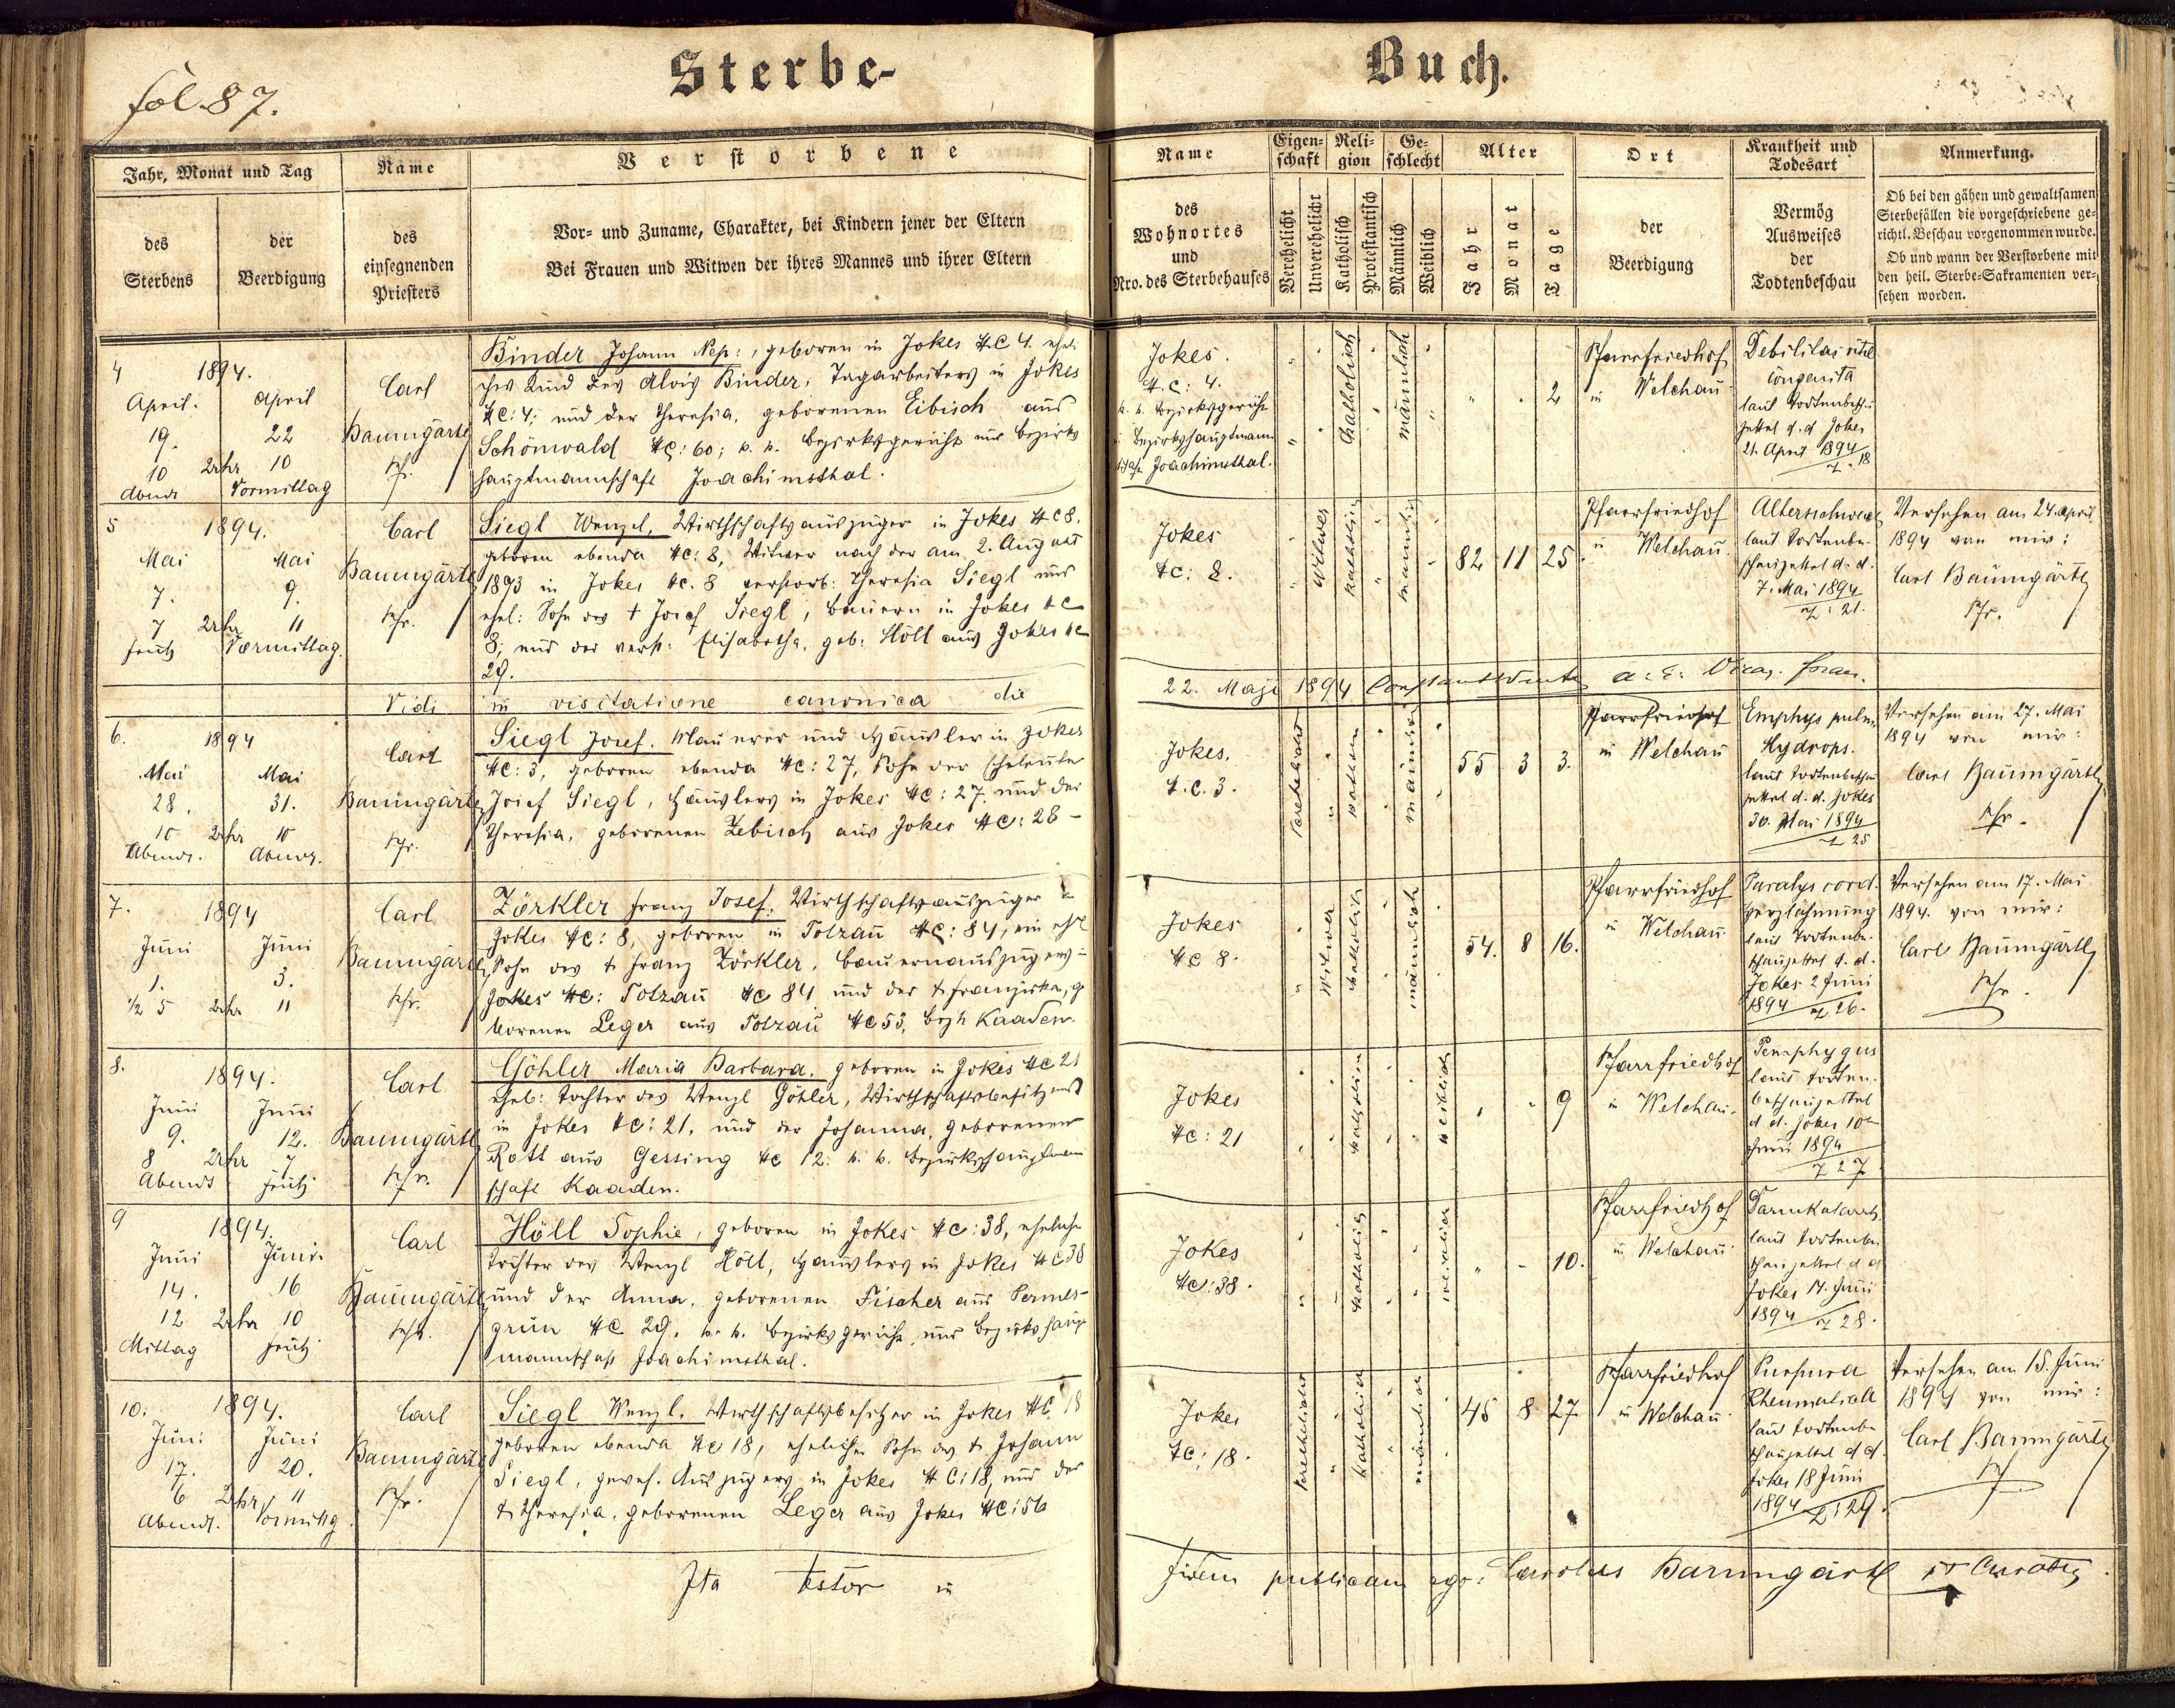 fol. 87.
Sterbe-
Buch.
Jahr, Monat und Tag
des Sterbens
der Beerdigung
Name
des
einsegnenden
Priesters
Verstorbene
Vor- und Zuname, Charakter, bei Kindern jener der Eltern
Bei Frauen und Witwen der ihres Mannes und ihrer Eltern
Name
des
Wohnortes
und
Nro. des Sterbehauses
Eigen-
schaft
Verehelicht
Unverehelicht
Reli-
gion
Katholisch
Protestantisch
Ge-
schlecht
Männlich
Weiblich
Alter
Jahr
Monat
Tage
Ort
der
Beerdigung
Krankheit und
Todesart
Vermög
Ausweises
der
Todtenbeschau
Anmerkung.
Ob bei den gähen und gewaltsamen
Sterbefällen die vorgeschriebene ge-
richtl. Beschau vorgenommen wurde.
Ob und wann der Verstorbene mit
den heil. Sterbe-Sakramenten ver-
sehen worden.
4
1894.
April. April
19. 22
10 Uhr 10
Abends Vormittag
Carl
Baumgärtl
Pfr.
Binder Johann Nep:, geboren in Jokes NC 4. eheli
ches Kind des Alois Binder, Tagarbeiters in Jokes
NC: 4; und der Theresia, geborenen Eibisch aus
Schönwald NC: 60; k. k. Bezirksgericht und Bezirks
hauptmannschaft Joachimsthal.
Jokes.
N.C: 4.
k. k. Bezirksgericht
u Bezirkshauptmann
schaft Joachimsthal.
katholisch
männlich
2
Pfarrfriedhof
in Welchau
Debilitas vitæ
congenita
laut Todtenbeschau
zettel d. d. Jokes
21. April 1894
Z: 18
5
1894.
Mai Mai
7. 9.
7 Uhr 11
früh Vormittag.
Carl
Baumgärtl
Pfr.
Siegl Wenzel, Wirthschaftsauszüger in Jokes NC 8.
geboren ebenda NC: 8, Witwer nach der am 2. August
1893 in Jokes NC. 8 verstorb: Theresia Siegl und
ehel: Sohn des † Josef Siegl, Bauern in Jokes NC
8, und der verst: Elisabetha, geb: Höll aus Jokes NC
29.
Jokes
NC: 8.
Witwer
katholisch
männlich
82 11 25
Pfarrfriedhof
in Welchau.
Altersschwäche
laut Todtenbe-
schauzettel d. d.
7. Mai 1894
Z: 21.
Versehen am 24. April
1894 von mir:
Carl Baumgärtl
Pfr.
Vidi in visitatione canonica die
22. Maji 1894 a: e: Vicar. foran.
6.
1894
Mai Mai
28. 31.
10 Uhr 10
Abends. Abends.
Carl
Baumgärtl
Pfr.
Siegl Josef. Maurer und Häusler in Jokes
NC: 3, geboren ebenda NC: 27, Sohn der Eheleute
Josef Siegl, Häuslers in Jokes NC: 27. und der
Theresia, geborenen Zebisch aus Jokes NC: 28 –
Jokes.
N.C. 3.
Verehelicht
männlich
55 3 3.
Pfarrfriedhof
in Welchau
Emphys pulm.
Hydrops.
laut Todtenbeschau
zettel d. d. Jokes
30. Mai 1894
Z 25
Versehen am 27. Mai
1894 von mir:
Carl Baumgärtl
Pfr.
7.
1894
Juni Juni
1. 3.
1/2 5 Uhr 11
Carl
Baumgärtl
Pfr.
Zörkler Franz Josef, Wirthschaftsauszüger in
Jokes NC: 8, geboren in Totzau NC: 84, ein ehl
Sohn des † Franz Zörkler, Bauernauszügers in
Jokes NC: Totzau NC 84 und der † Franziska, ge
borenen Leger aus Totzau NC 53, Bezh Kaaden.
Jokes
NC 8.
Witwer
katholisch
männlich
54. 8 16.
Pfarrfriedhof
in Welchau
Paralys cord.
Herzlähmung
laut Todtenbe-
schauzettel d. d.
Jokes 2 Juni
1894 Z 26.
Versehen am 17. Mai
1894. von mir:
Carl Baumgärtl
Pfr.
8.
1894.
Juni Juni
9. 12.
8 Uhr 7
Abends früh
Carl
Baumgärtl
Pfr.
Göhler Maria Barbara. geboren in Jokes NC 21
ehel: Tochter des Wenzl Göhler, Wirthschaftsbesitzers
in Jokes NC: 21, und der Johanna, geborenen
Rott aus Gessing NC 12: k. k. Bezirkshauptmann
schaft Kaaden.
Jokes
NC: 21
katholisch
weiblich
9
Pfarrfriedhof
in Welchau.
Pemphygus
laut Todten-
beschauzettel
d d. Jokes 10ten
Juni 1894
Z 27
9
1894.
Juni Juni.
14. 16
12 Uhr 10
Mittag früh
Carl
Baumgärtl
Pfr.
Höll Sophie, geboren in Jokes NC: 38, eheliche
Tochter des Wenzl Höll, Häuslers in Jokes NC 38
und der Anna, geborenen Fischer aus Permes-
grün NC 29, k. k. Bezirksgericht und Bezirkshaupt
mannschaft Joachimsthal.
Jokes
NC: 38.
katholisch
weiblich
10.
Pfarrfriedhof
in Welchau
Darmkatarrh
laut Todtenbe
schauzettel d d
Jokes 17. Juni
1894 Z 28.
10.
1894.
Juni Juni
17. 20.
6 Uhr 11
Abends. Vormittg.
Carl
Baumgärtl
Pfr.
Siegl Wenzl. Wirthschaftsbesitzer in Jokes NC 18
geboren ebenda NC 18, ehelicher Sohn des † Johann
Siegl, gewes. Auszügers in Jokes N C: 18, und der
† Theresia, geborenen Leger aus Jokes NC: 56
Jokes
NC: 18.
Verehelicht
katholisch
männlich
45 8 27
Pfarrfriedhof
in Welchau
Purpura
Rheumatica
laut Todtenbe
schauzettel d d.
Jokes 18 Juni
1894 Z: 29.
Versehen am 15. Juni
1894 von mir:
Carl Baumgärtl
Pf
Ita testor in
fidem publicam ego: Carolus Baumgärtl